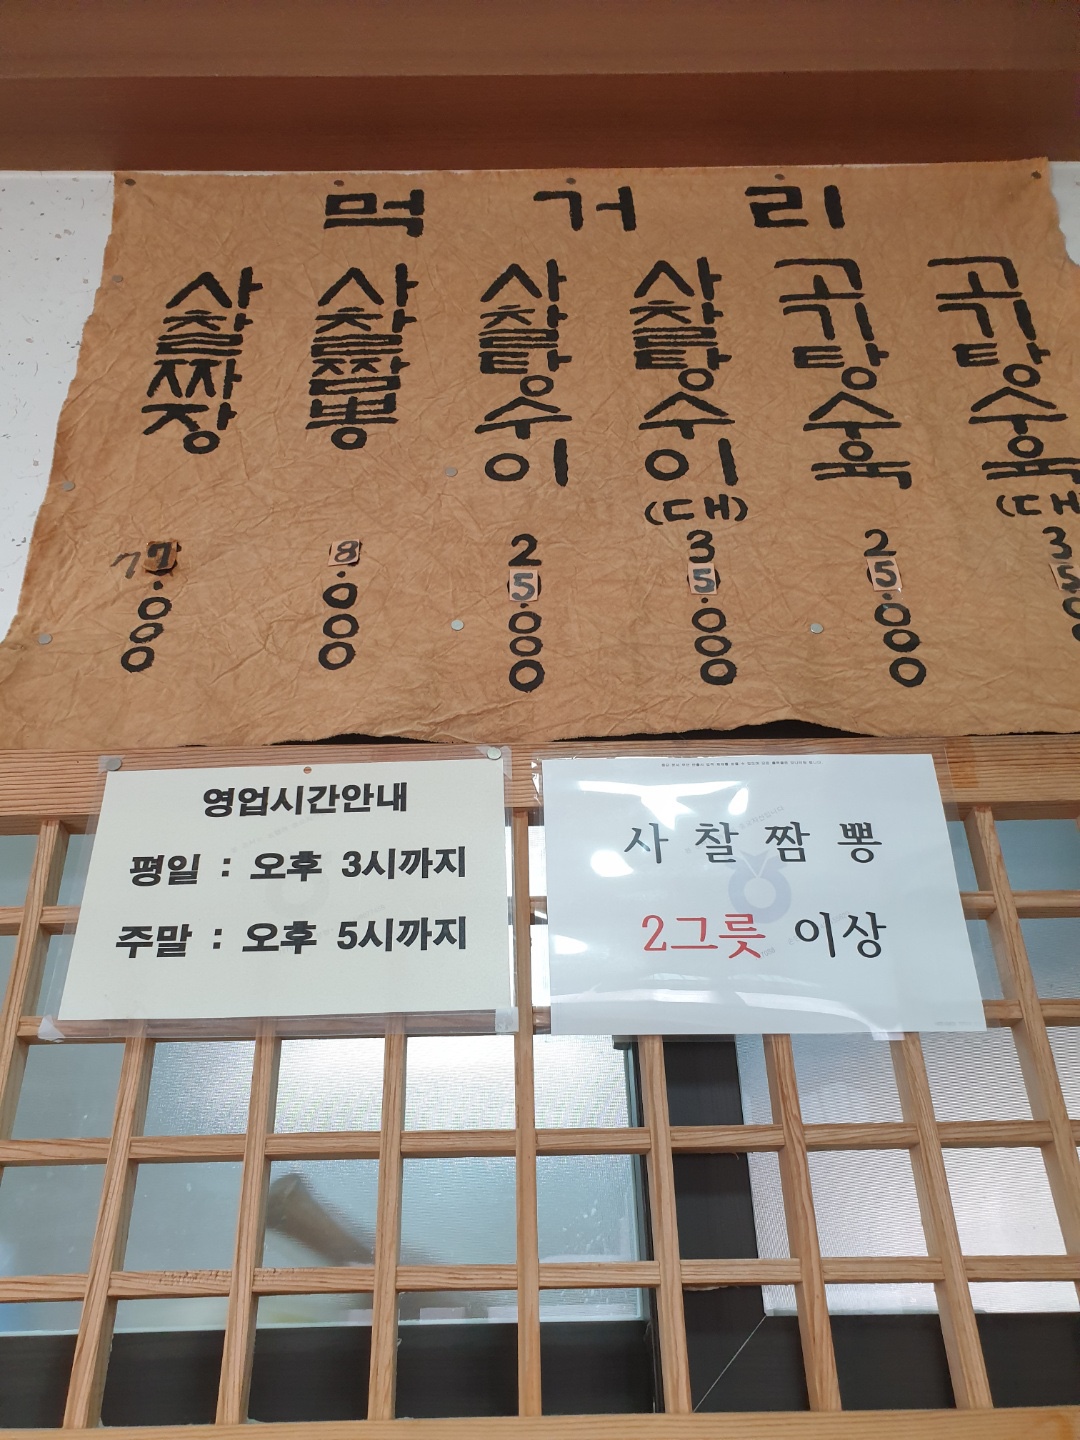 먹거리
사찰짜장 77.000
사찰짬뽕 8.000
사찰탕수이 25.000
사찰탕수이 (대) 35.000
고기탕숭육 25.000
고기탕숭육 (대
영업시간안내
평일 : 오후 3시까지
주말 : 오후 5시까지
사 찰 짬 뽕
2그릇 이상